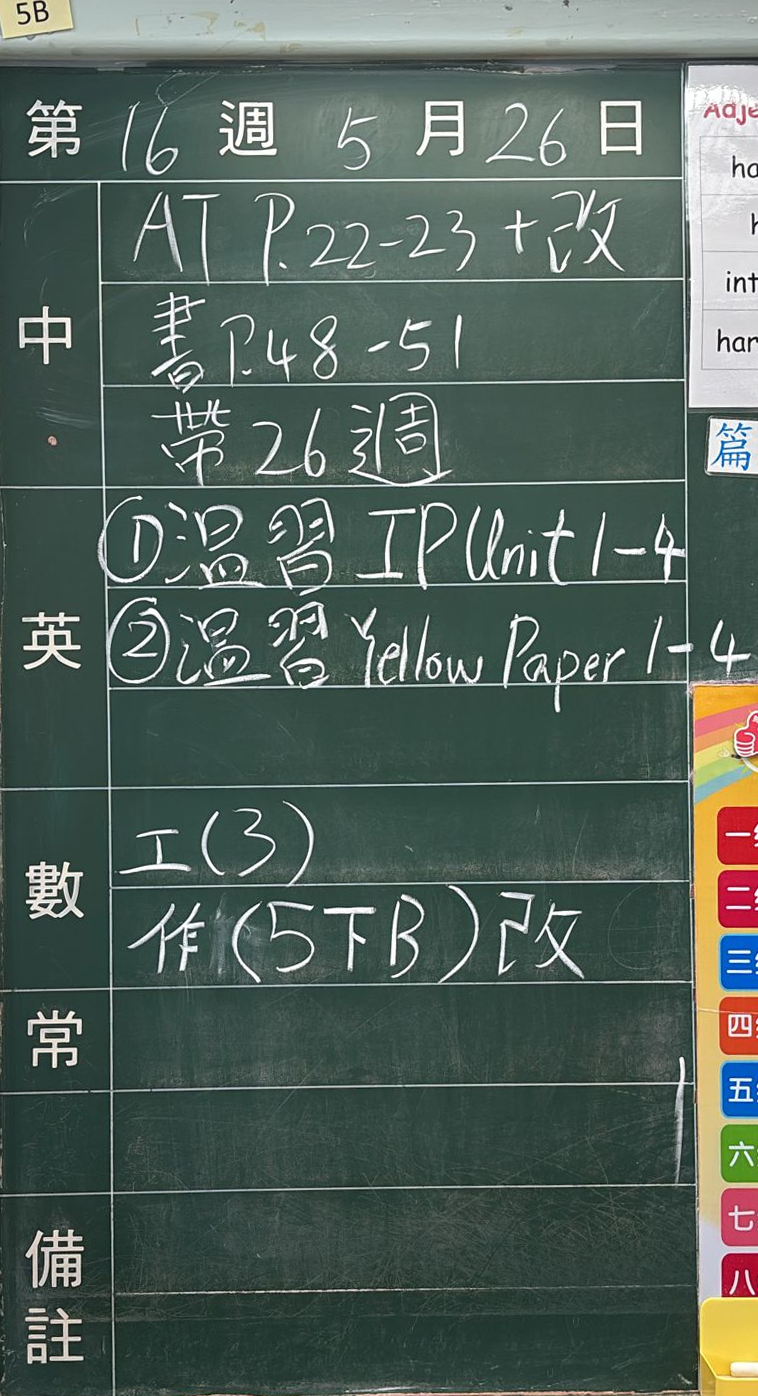 5B
第 16 週 5 月 26 日
中
AT P.22-23 + 改
書 P.48-51
帶 26 週
英
①温習 IP Unit 1-4
②温習 Yellow Paper 1-4
數
工(3)
作(5下B)改
常
備註
篇
一
二
三
四
五
六
七
八